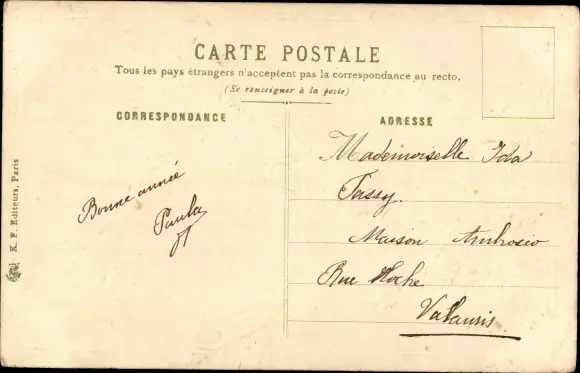 CARTE POSTALE
Tous les pays étrangers n'acceptent pas la correspondance au recto.
(Se renseigner à la poste)
CORRESPONDANCE
ADRESSE
Bonne année
Paula
Mademoiselle Ida
Tassy.
Maison Ambrosio
Rue Hoche
Valauris
K. F. Editeurs, Paris